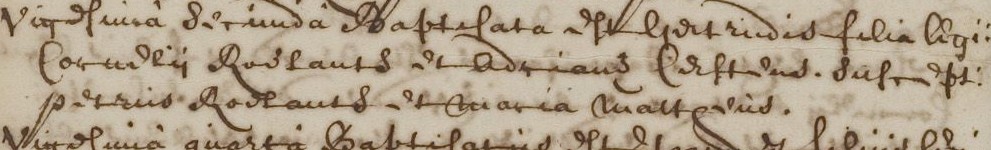 Vigesima secunda Baptisata est Gertrudis filia legi:
Cornelij Roelants et Adrianae Kerstens. suscept:
petrus Roelants et maria mattheus.
Vigesima quarta Baptisatus est et filius legi